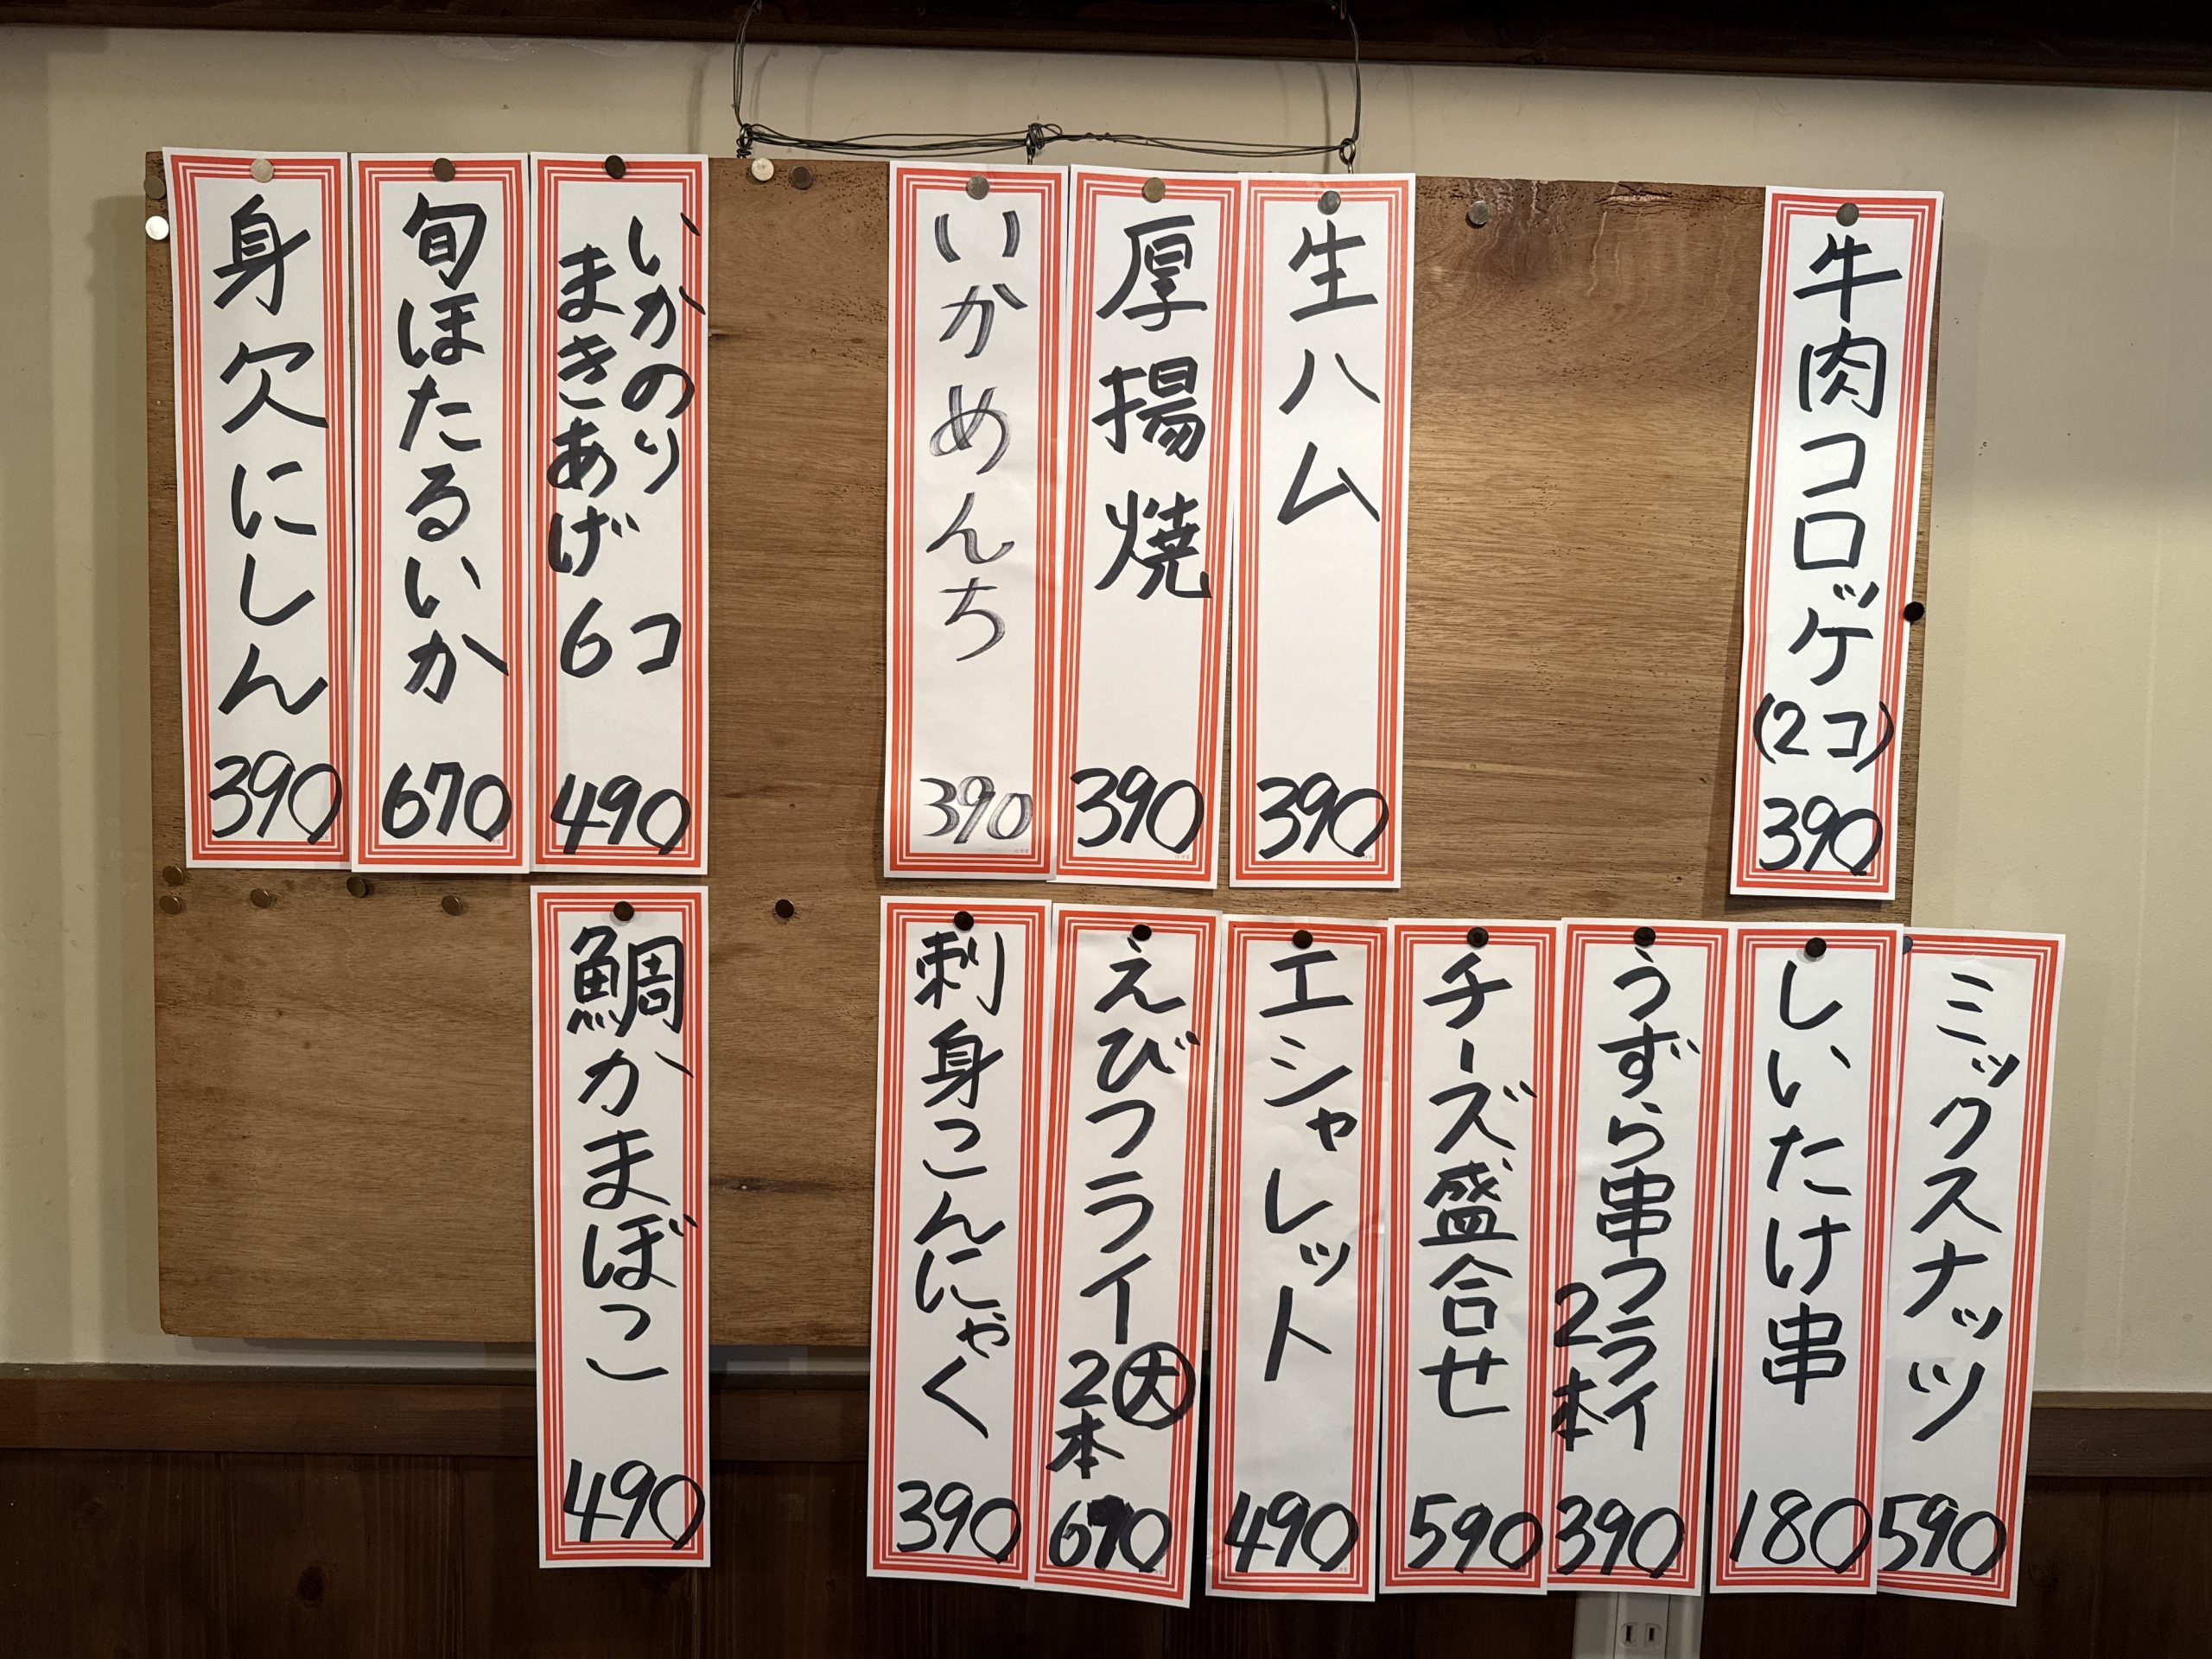 牛肉コロッケ
(2コ)
390
生ハム
390
厚揚焼
390
いかめんち
390
いかのり
まきあげ
6コ
490
旬ほたるいか
670
身欠にしん
390
ミックスナッツ
590
しいたけ串
180
うずら串フライ
2本
390
チーズ盛合せ
590
エシャレット
490
えびフライ
大
2本
刺身こんにゃく
390
鯛かまぼこ
490